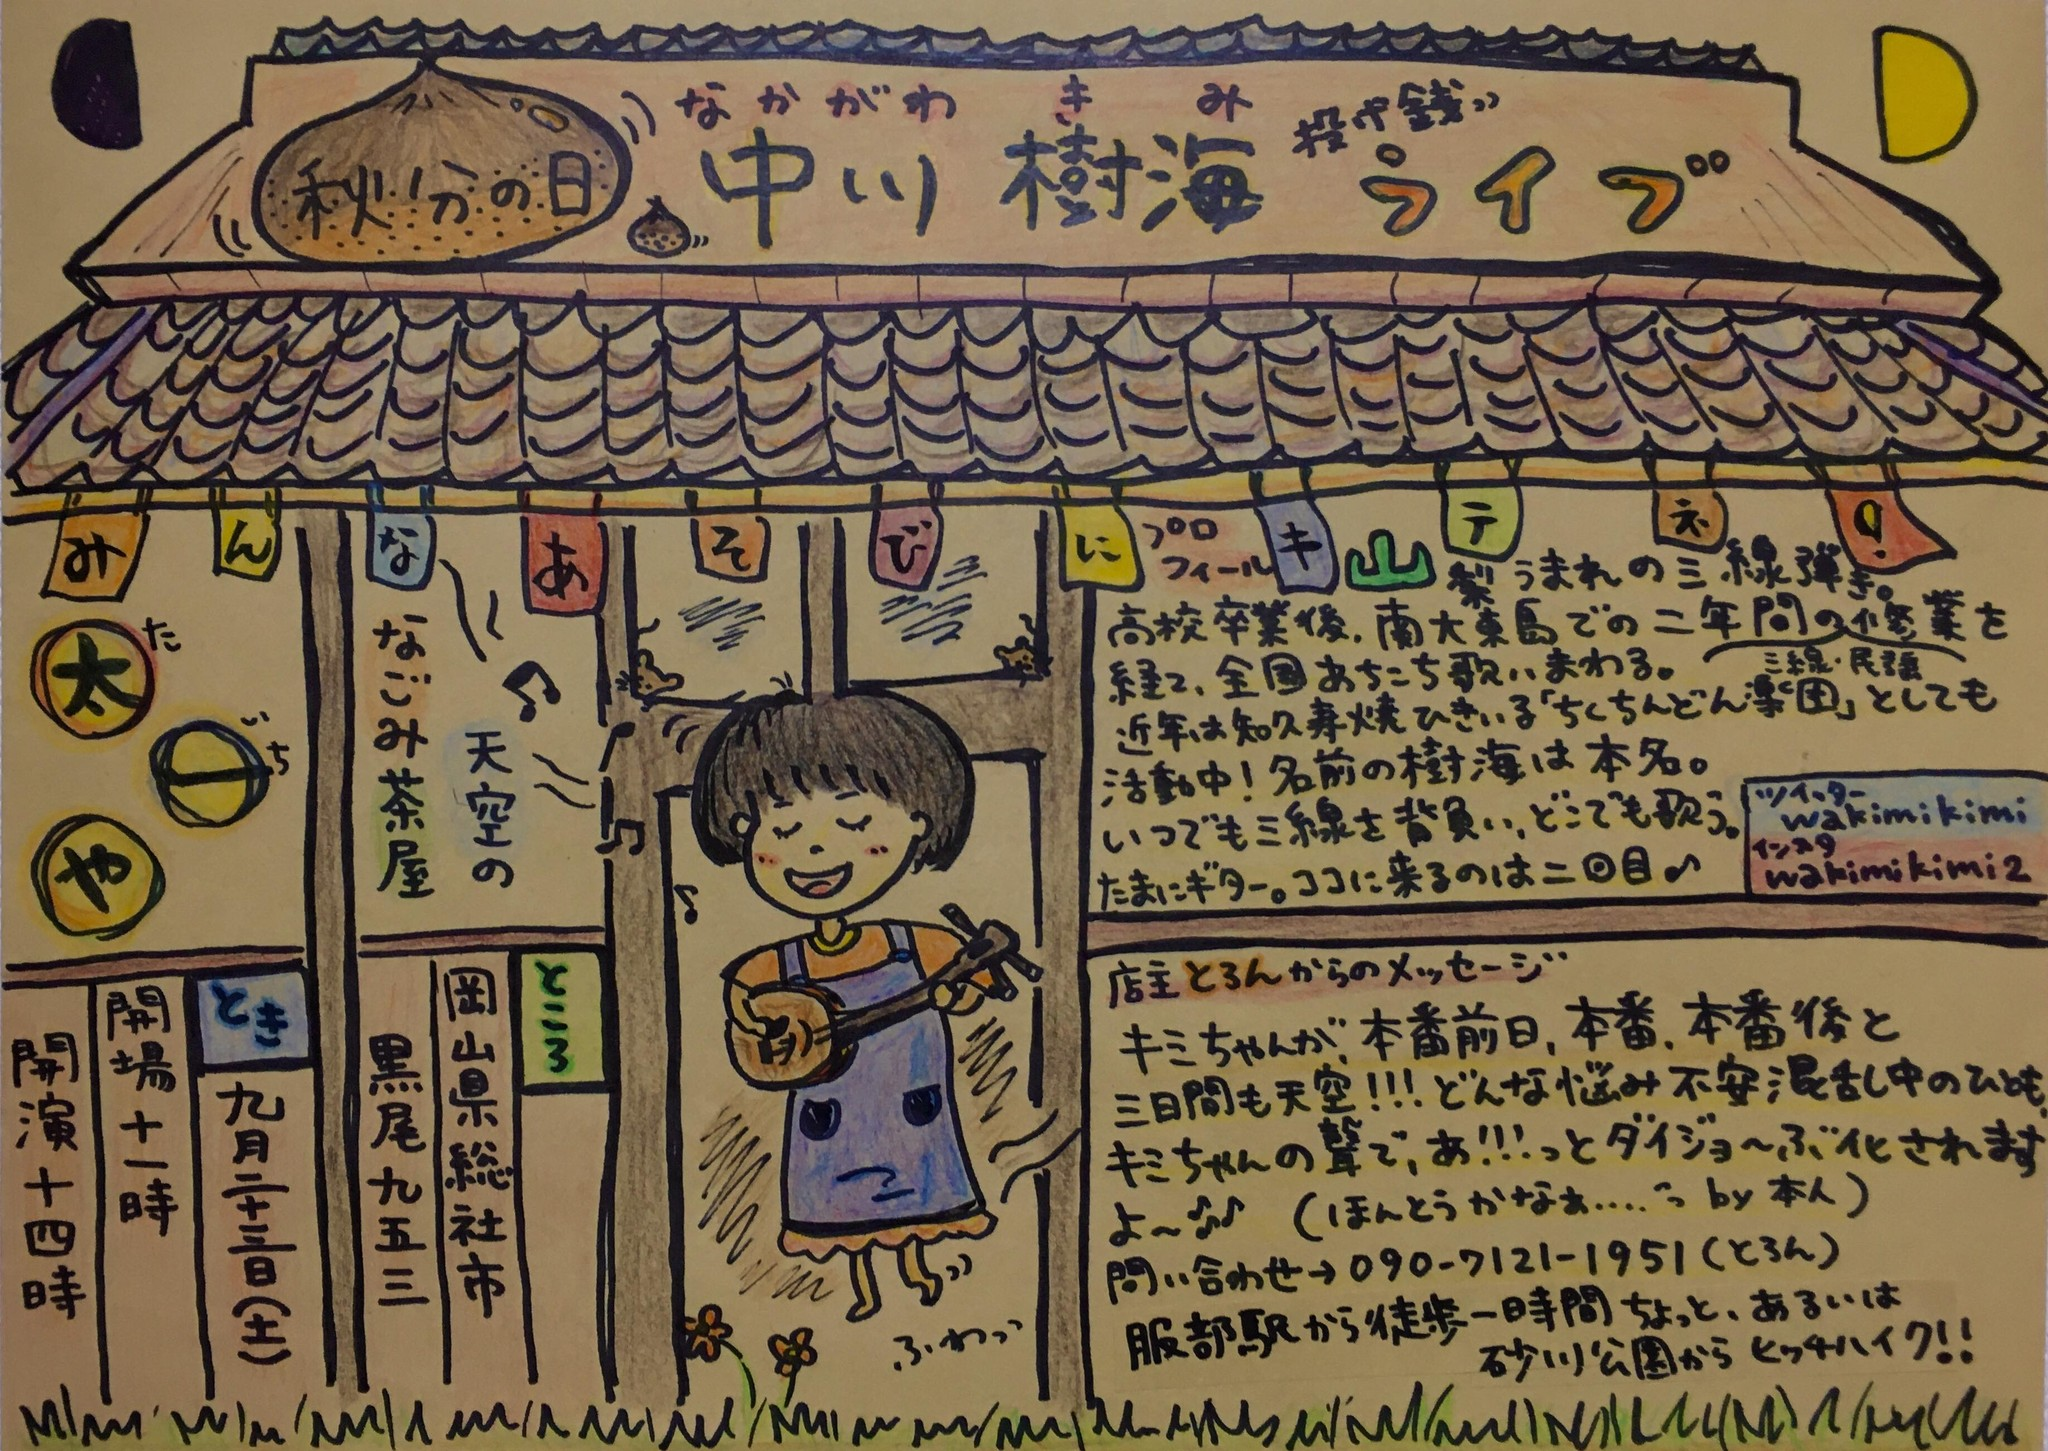 秋分の日
なかがわ きみ
中川 樹海
投げ銭
ライブ
みんなあそびにキテネ!
太一や
た
いち
なごみ茶屋
天空の
ところ
岡山県総社市
黒尾九五三
とき
九月二十三日(土)
開場十一時
開演十四時
ふわっ
プロフィール
山梨うまれの三線弾き。
高校卒業後、南大東島での二年間の修業を
三線・民謡
経て、全国あちこち歌いまわる。
近年は知久寿焼ひきいる「ちくちんどん楽団」としても
活動中!名前の樹海は本名。
いつでも三線を背負い、どこでも歌う。
たまにギター。ココに来るのは二回目♪
ツイッター
wakimikimi
インスタ
wakimikimi2
店主とろんからのメッセージ
キミちゃんが、本番前日、本番、本番後と
三日間も天空!!!どんな悩み不安混乱し中のひとも、
キミちゃんの聲で、あ!!!っとダイジョ〜ぶ化されます
よ〜♪♪ (ほんとうかなぁ....っ by 本人)
問い合わせ→090-7121-1951(とろん)
服部駅から徒歩一時間ちょっと、あるいは
砂川公園からヒッチハイク!!